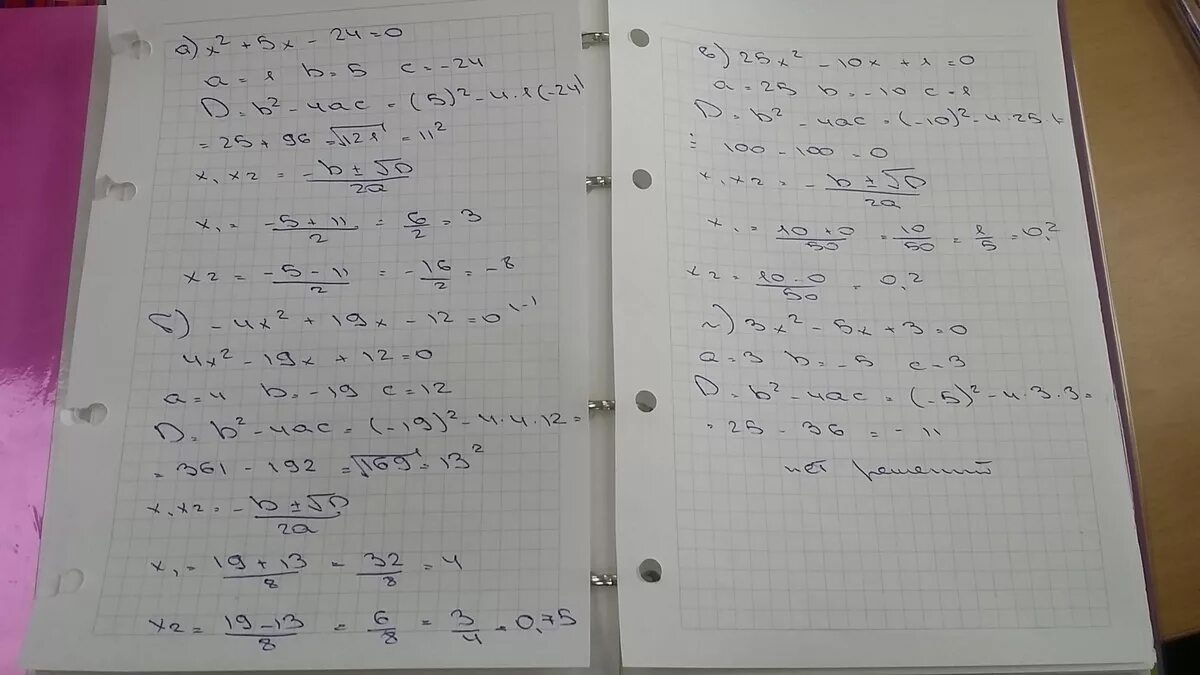 а) x² + 5x - 24 = 0
a = 1 b = 5 c = -24
D = b² - 4ac = (5)² - 4·1(-24)
= 25 + 96 = √121 = 11²
x₁ x₂ = -b ± √D / 2a
x₁ = -5 + 11 / 2 = 6/2 = 3
x₂ = -5 - 11 / 2 = -16/2 = -8
б) -4x² + 19x - 12 = 0 \·(-1)
4x² - 19x + 12 = 0
a = 4 b = -19 c = 12
D = b² - 4ac = (-19)² - 4·4·12 =
= 361 - 192 = √169 = 13²
x₁ x₂ = -b ± √D / 2a
x₁ = 19 + 13 / 8 = 32/8 = 4
x₂ = 19 - 13 / 8 = 6/8 = 3/4 = 0,75
в) 25x² - 10x + 1 = 0
a = 25 b = -10 c = 1
D = b² - 4ac = (-10)² - 4·25·1
= 100 - 100 = 0
x₁ x₂ = -b ± √D / 2a
x₁ = 10 + 0 / 50 = 10/50 = 1/5 = 0,2
x₂ = 10 - 0 / 50 = 0,2
г) 3x² - 5x + 3 = 0
a = 3 b = -5 c = 3
D = b² - 4ac = (-5)² - 4·3·3 =
= 25 - 36 = -11
нет решений